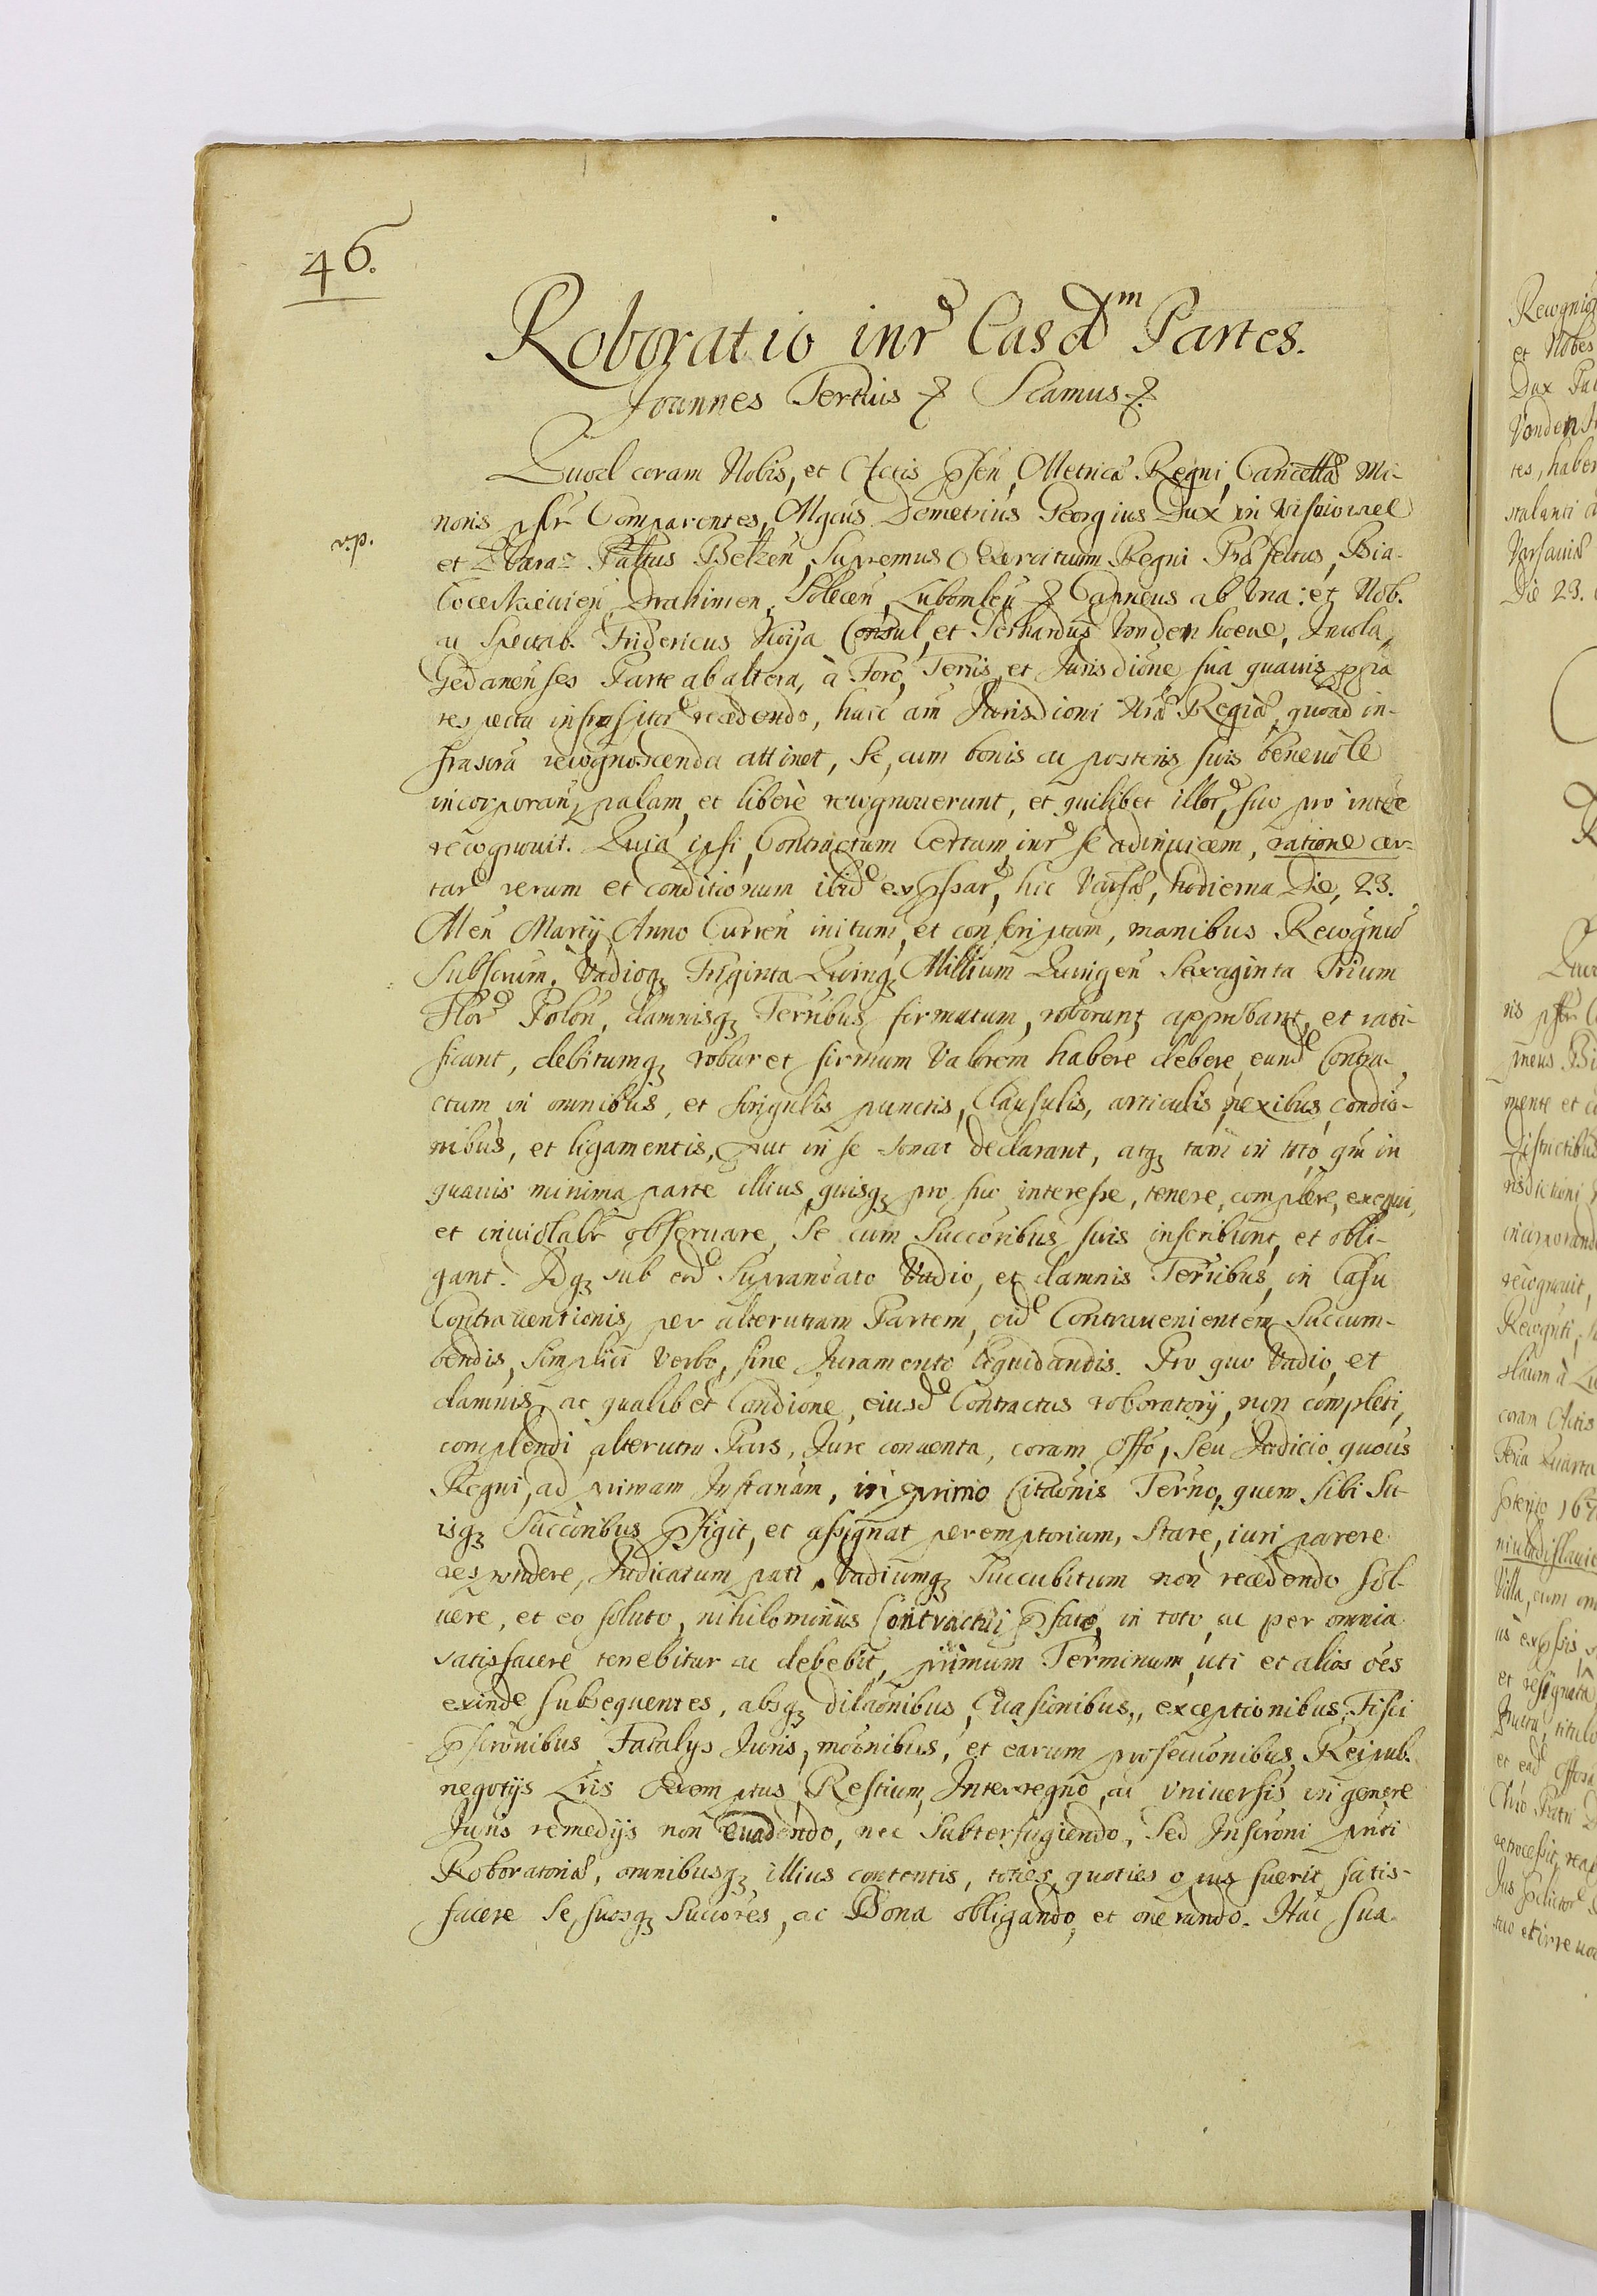 46.
Roboratio inr Easdm Partes.
Joannes Tertius & Scamus &
Quod coram Nobis, et Actis psen, Metrices Regni, Cancellas Mi-
noris psr Comparentes, Mgcus Demetrius Georgius Dux in Wisniowiec
v.p.
et Zbaraz Palnus Belzen, Supremus Exercituum Regni Præfectus, Bia-
locerkiewien, Drahimen, Solecen, Lubomlen & Capneus ab Una: et Nob.
ac Spectab. Fridericus Consul, et Gerhardus Vonden hoeve, Incola,
Gedanenses Parte ab altera, à Foro, Terris, et Jurisdione sua quauis ppia
respectu infrascitor recedendo, huic am Jurisdioni Nræ Regiæ, quoad in-
frascra recognoscenda attinet, Se, cum bonis ac posteris suis beneuole
incorporan, palam, et liberè recognouerunt, et quilibet illor, suo pro intee
recognouit. Quia ipsi, Contractum Certum, inr se adinuicem, ratione cer-
tar rerum et conditionum ibid expssar, hic Varsæ, hodierna Die, 23.
Men Martij Anno Curren initum, et conscriptam, manibus Recognu
Subscrum, Vadioq Triginta Quinq Millium Quingen Sexaginta Trium
Flor Polon, damnisq Terribus firmatum, roborant, approbant, et rati-
ficant, debitumq robur et firmum Valorem habere debere eund Contra-
ctum in omnibus, et singulis punctis, Clausulis, articulis, nexibus, condio-
nibus, et ligamentis, put in se sonat declarant, atq tam in toto, qm in
quauis minima parte illius, quisq pro suo interesse, tenere, complere, exequi,
et inuiolabr obseruare, Se cum Succoribus suis inscribunt, et obli-
gant. Idq sub eod Supranoato Vadio, et damnis Terribus, in Casu
Contrauentionis, per alterutram Partem, eid Contrauenientem Succum-
bendis, simplici Verbo, sine Juramento liquidandis. Pro quo Vadio, et
damnis, ac qualibet Condione, eiusd Contractus roboratorij, non completi,
complendi alterutra Pars, Jure conuenta, coram Offo, seu Judicio quouis
Regni, ad primam Instanam, in primo Citaonis Terno, quem sibi Su-
isq Succoribus pfigit, et assignat peremptorium, Stare, iuri parere
respondere, Judicatum pati, Vadiumq Succubitum non recedendo sol-
uere, et eo soluto, nihilominus Contractui psato, in toto, ac per omnia
satisfacere tenebitur ac debebit, primum Terminum, uti et alios oes
exinde subsequentes, absq dilaonibus, Euasionibus, exceptionibus, Fisci
pscronibus Fatalys Juris, moonibus, et earum prosecuonibus, Reipub.
negotijs Lris Exemptus, Restium, Interregno, ac Vniuersis in genere
Juris remedijs non Euadendo, nec Subterfugiendo, Sed Inscroni pnti
Roboratoriæ, omnibusq illius contentis, toties, quoties opus fuerit, satis-
facere Se, suosq Succores, ac Bona obligando, et onerando. Hac sua